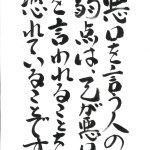 悪口を言う人の
弱点は己が悪口
を言われることを
恐れていることです